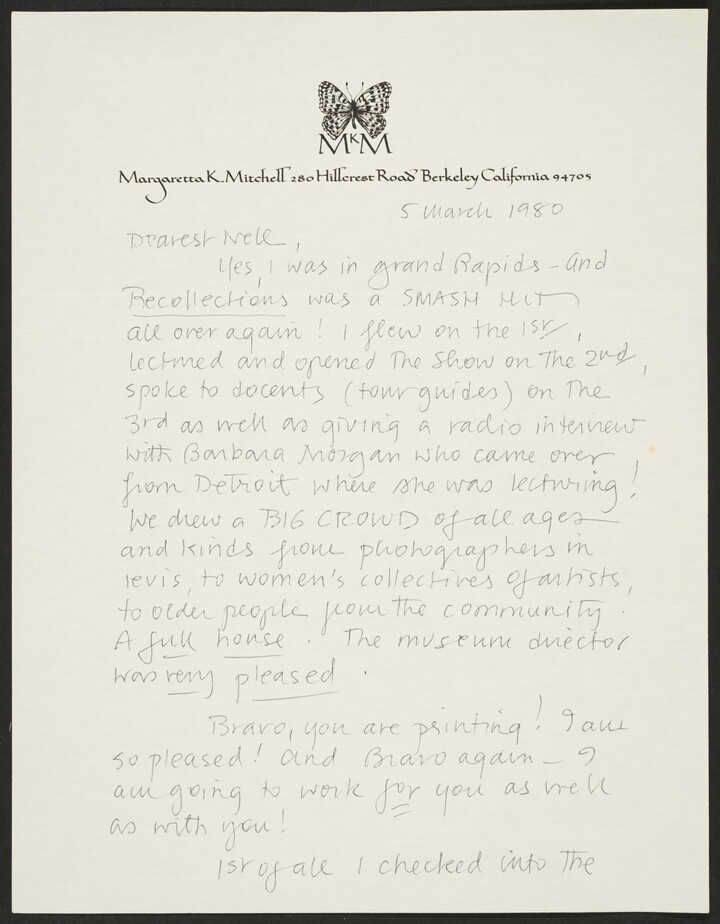 MKM
Margaretta K. Mitchell 280 Hillcrest Road Berkeley California 94705
5 March 1980
Dearest Nell,
Yes, I was in Grand Rapids - and
Recollections was a SMASH HIT
all over again! I flew on the 1st,
lectured and opened The Show on The 2nd,
spoke to docents (tour guides) on The
3rd as well as giving a radio interview
with Barbara Morgan who came over
from Detroit where she was lecturing!
We drew a BIG CROWD of all ages
and kinds from photographers in
levis, to women's collectives of artists,
to older people from the community.
A full house. The museum director
was very pleased.
Bravo, you are printing! I am
so pleased! And Bravo again - I
am going to work for you as well
as with you!
1st of all I checked into The